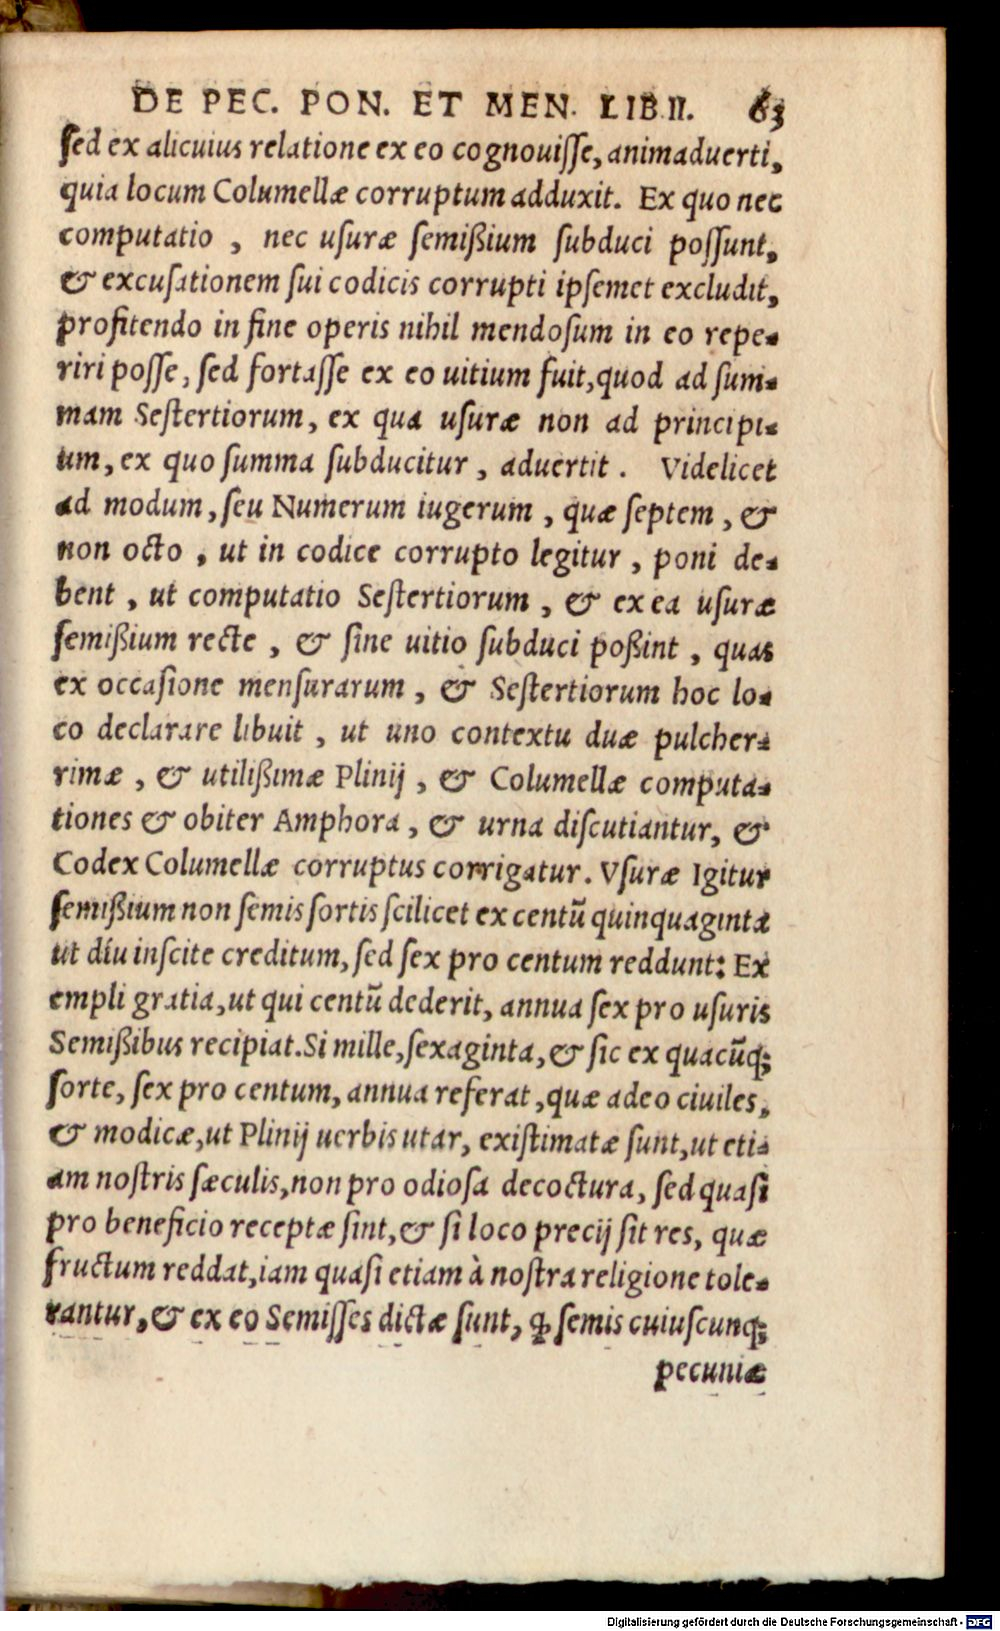 DE PEC. PON. ET MEN. LIB.II. 63
ſed ex alicuius relatione ex eo cognouiſſe, animaduerti,
quia locum Columellæ corruptum adduxit. Ex quo nec
computatio , nec uſuræ ſemißium ſubduci poſſunt,
& excuſationem ſui codicis corrupti ipſemet excludit,
profitendo in fine operis nihil mendoſum in eo repe-
riri poſſe, ſed fortaſſe ex eo uitium fuit,quod ad ſum-
mam Seſtertiorum, ex qua uſuræ non ad principi-
um, ex quo ſumma ſubducitur , aduertit . Videlicet
ad modum, ſeu Numerum iugerum , quæ ſeptem , &
non octo , ut in codice corrupto legitur , poni de-
bent , ut computatio Seſtertiorum , & ex ea uſuræ
ſemißium recte , & ſine uitio ſubduci poßint , quas
ex occaſione menſurarum , & Seſtertiorum hoc lo-
co declarare libuit , ut uno contextu duæ pulcher-
rimæ , & utilißimæ Plinij , & Columellæ computa-
tiones & obiter Amphora , & urna diſcutiantur, &
Codex Columellæ corruptus corrigatur. Vſuræ Igitur
ſemißium non ſemis ſortis ſcilicet ex centū quinquaginta
ut diu inſcite creditum, ſed ſex pro centum reddunt: Ex
empli gratia,ut qui centū dederit, annua ſex pro uſuris
Semißibus recipiat.Si mille,ſexaginta,& ſic ex quacūq;
ſorte, ſex pro centum, annua referat ,quæ adeo ciuiles,
& modicæ,ut Plinij uerbis utar, exiſtimatæ ſunt,ut eti-
am noſtris ſæculis,non pro odioſa decoctura, ſed quaſi
pro beneficio receptæ ſint,& ſi loco precij ſit res, quæ
fructum reddat,iam quaſi etiam à noſtra religione tole-
rantur,& ex eo Semiſſes dictæ ſunt, ꝙ ſemis cuiuſcunq;
pecuniæ
Digitalisierung gefördert durch die Deutsche Forschungsgemeinschaft - DFG